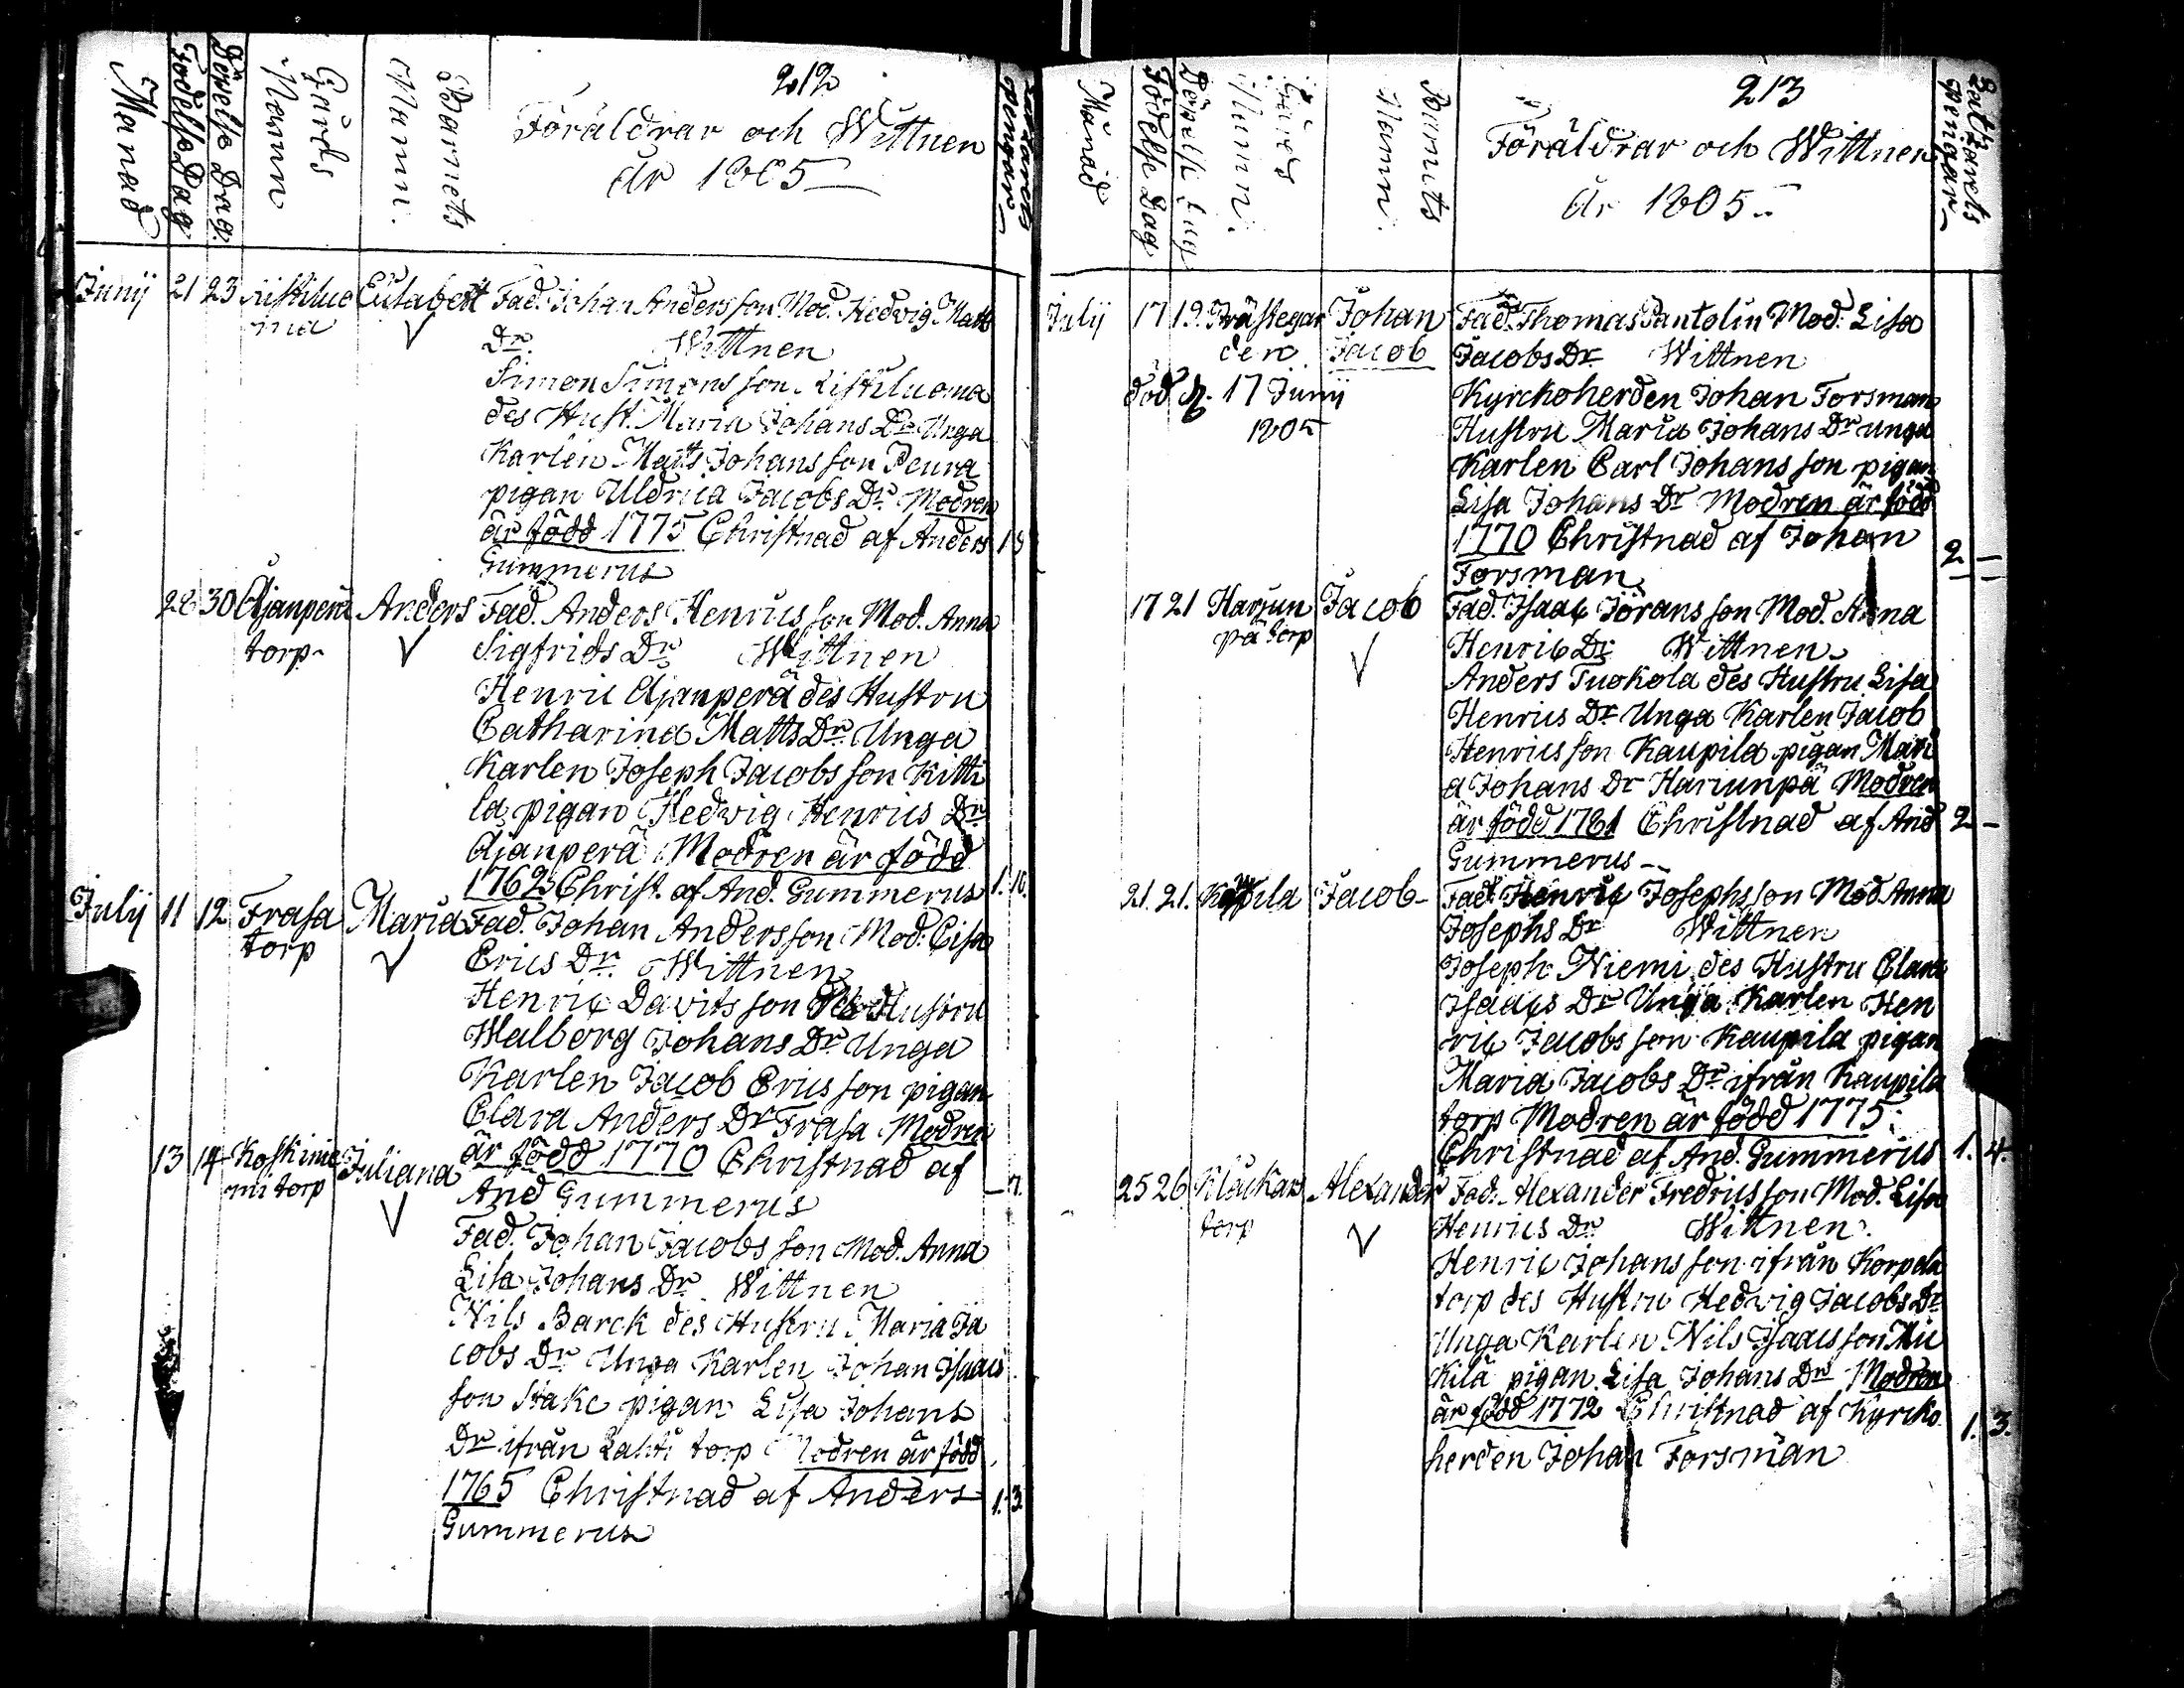 212
Månad
Födelse Dag
Döpelse Dag
Gårds Namn
Barnets Namn.
Föräldrar och Wittnen
år 1805
Junij 21 23 Fad. Johan Andersson Mod. Hedvig Matts
Dr. Wittnen
Simon Simonsson Ristiluoma
des Hust. Maria Johans Dr Unga
Karlen Matts Johansson Peura
pigan Uldrica Jacobs Dr. Modren
är född 1775 Christnad af Anders
Gummerus
28 30 Ajanperä Anders Fad. Anders Henricsson Mod. Anna
torp Sigfrids Dr Wittnen
Henric Ajanperä des Hustru
Catharina Matts Dr. Unga
Karlen Joseph Jacobsson Kitti
la pigan Hedvig Henrics Dr
Ajanperä Modren är född
1762 Christ. af And. Gummerus 1. 10.
Julij 11 12 Frasa Maria Fad. Johan Andersson Mod. Lisa
torp Erics Dr. Wittnen
Henric Davitsson des Hustru
Walborg Johans Dr Unga
Karlen Jacob Ericsson pigan
Clara Anders Dr Frasa Modren
är född 1770 Christnad af
And Gummerus
13 14 Koskinie Juliana
mi torp
Fad. Johan Jacobsson Mod. Anna
Lisa Johans Dr. Wittnen
Nils Barck des Hustru Maria Ja
cobs Dr Unga Karlen Johan Isaacs
son Stake pigan Lisa Johans
Dr ifrån Lahti torp Modren är född
1765 Christnad af Anders 1. 3.
Gummerus
213
Månad
Födelse Dag
Döpelse Dag
Gårds Namn.
Barnets Namn.
Föräldrar och Wittnen
år 1805
Julij 17 19. Prästegår Johan Fad. Thomas Santolin Mod. Lisa
den Jacob Jacobs Dr Wittnen
död d. 17 Junij Kyrckoherden Johan Forsman
1805 Hustru Maria Johans Dr unga
Karlen Carl Johansson pigan
Lisa Johans Dr Modren är född
1770 Christnad af Johan 2 —
Forsman
17 21 Harjun Jacob Fad. Isaac Jöransson Mod. Anna
pä torp Henric Dr Wittnen
Anders Tuokola des Hustru Lisa
Henrics Dr Unga Karlen Jacob
Henricsson Kaupila pigan Mari
a Johans Dr Hariunpä Modren
är född 1781 Christnad af And 2 —
Gummerus
21. 21. Jacob Fad. Henric Josephsson Mod. Anna
Josephs Dr Wittnen
Joseph Niemi des Hustru Clara
Isaacs Dr Unga Karlen Hen
ric Jacobsson Kaupila pigan
Maria Jacobs Dr ifrån Kaupila
torp Modren är född 1775.
Christnad af And. Gummerus 1. 4.
25 26 Klåckars Alexander Fad. Alexander Fredricsson Mod. Lisa
torp Henrics Dr Wittnen.
Henric Johansson ifrån Korpela
torp des Hustru Hedvig Jacobs Dr
Unga Karlen Nils Isaacsson Mic
kilä pigan Lisa Johans Dr Modren
är född 1772 Christnad af Kyrcko 1. 3.
herden Johan Forsman